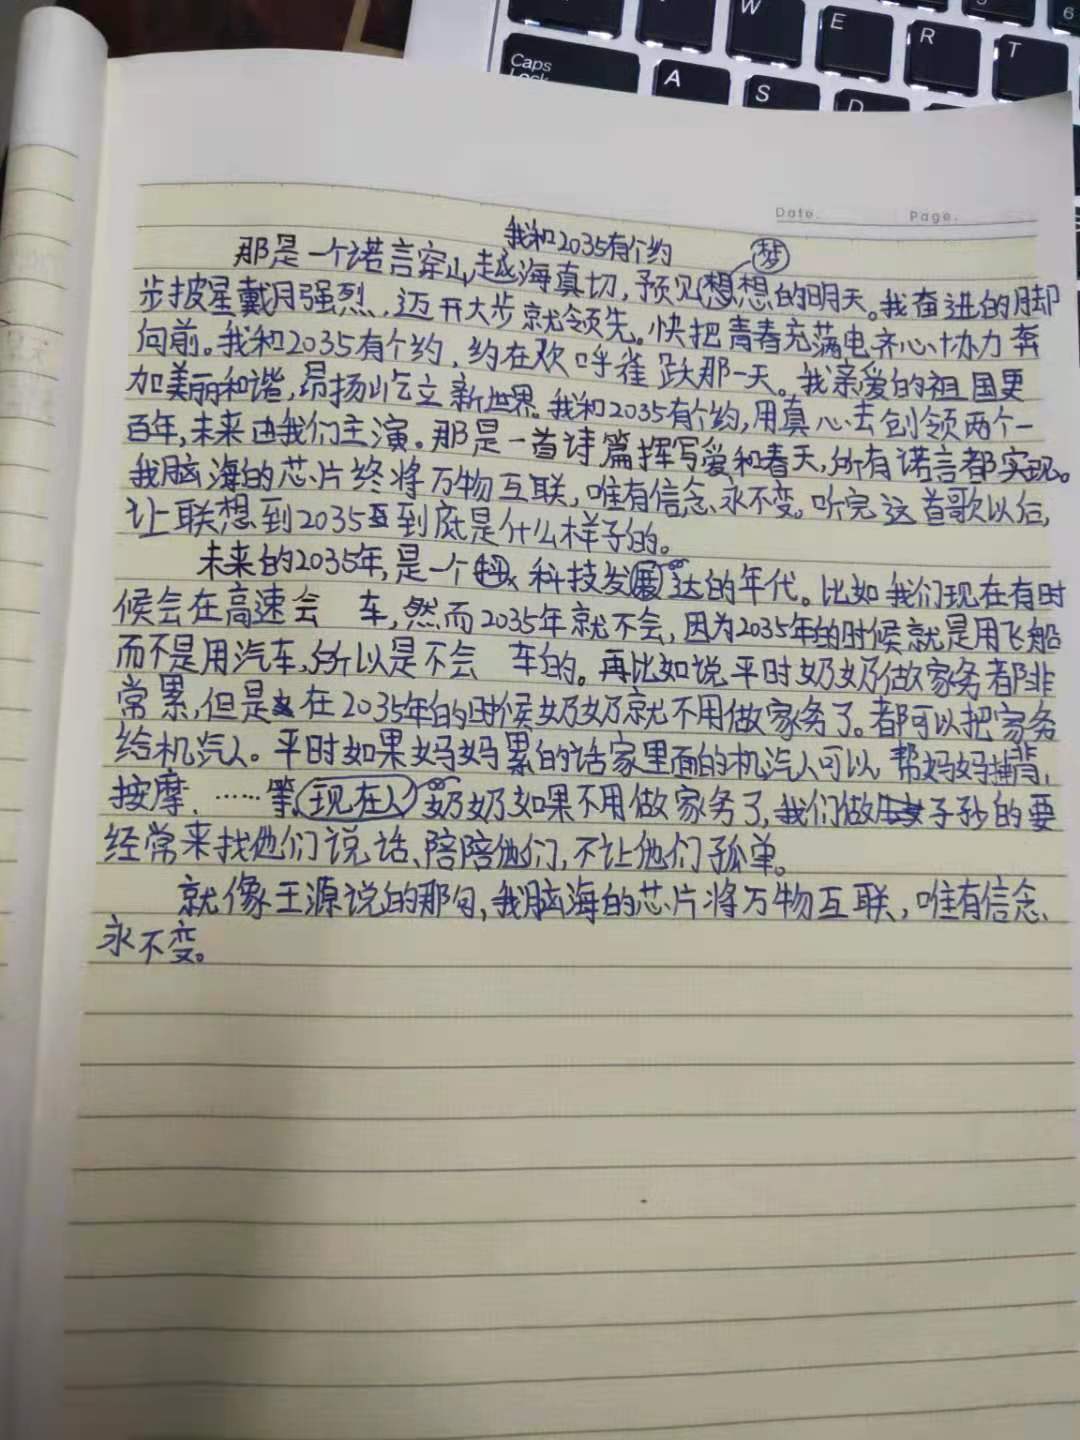 W E R T
Caps Lock A S D
6
Date. Page.
我和2035有个约
那是一个诺言穿山越海真切,预见梦想的明天。我奋进的脚
步披星戴月强烈,迈开大步就领先。快把青春充满电齐心协力奔
向前。我和2035有个约,约在欢呼雀跃那一天。我亲爱的祖国更
加美丽和谐,昂扬屹立新世界。我和2035有个约,用真心去创领两个一
百年,未来由我们主演。那是一首诗篇挥写爱和春天,所有诺言都实现。
我脑海的芯片终将万物互联,唯有信念、永不变。听完这首歌以后,
让联想到2035到底是什么样子的。
未来的2035年,是一个科技发达的年代。比如我们现在有时
候会在高速会 车,然而2035年就不会,因为2035年的时候就是用飞船
而不是用汽车,所以是不会 车的。再比如说平时奶奶做家务都非
常累,但是在2035年的时候奶奶就不用做家务了。都可以把家务
给机汽人。平时如果妈妈累的话家里面的机汽人可以帮妈妈捶背,
按摩、……等,现在人奶奶如果不用做家务了,我们做子孙的要
经常来找他们说话、陪陪他们,不让他们孤单。
就像王源说的那句,我脑海的芯片将万物互联,唯有信念、
永不变。